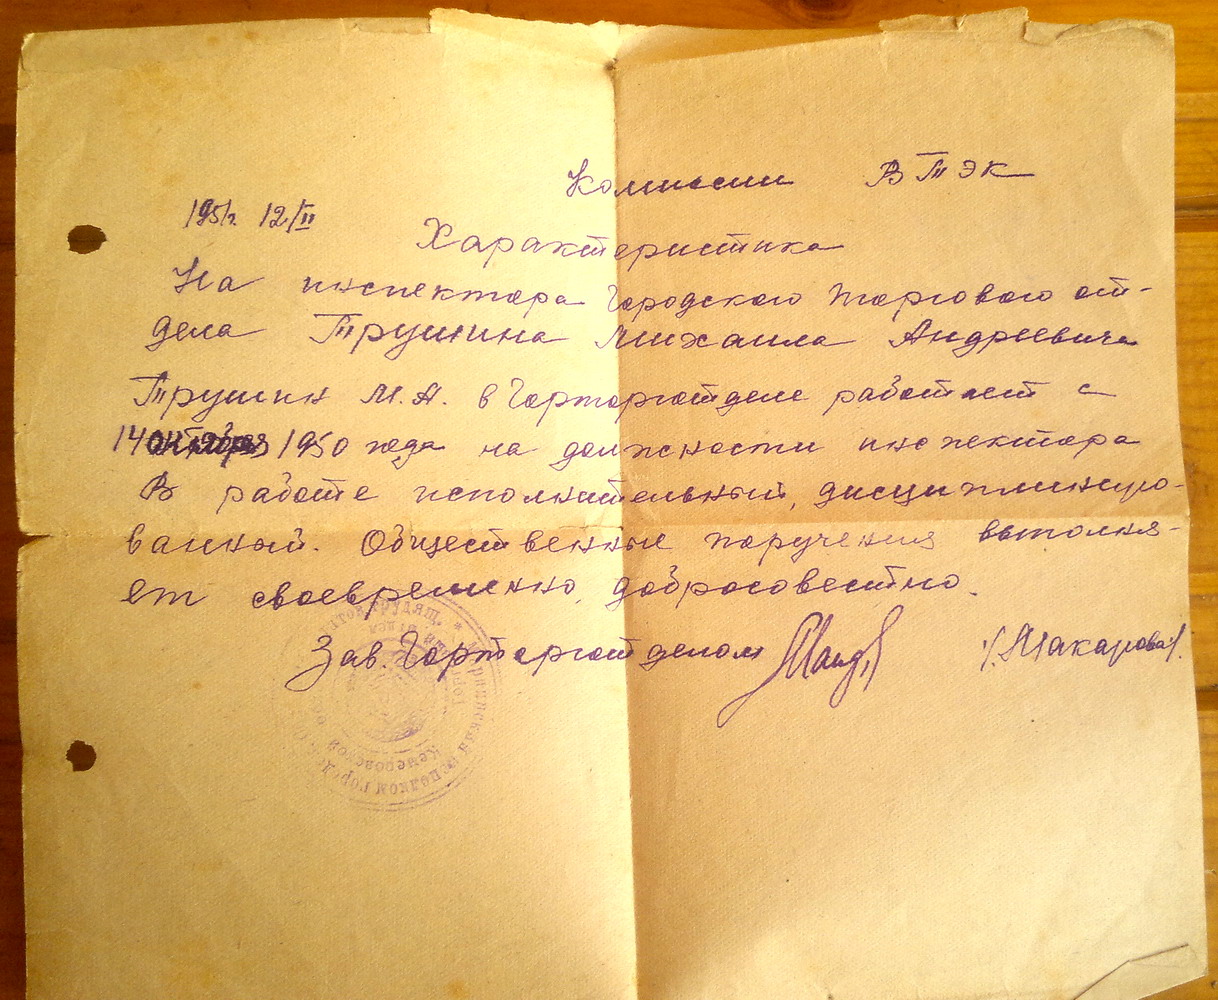 Комиссии ВТЭК
1951г. 12/II
Характеристика
На инспектора Городского торгового от-
дела Трушина Михаила Андреевича
Трушин М.А. в Горторготделе работает с
14 октября 1950 года на должности инспектора
В работе исполнительный, дисциплиниро-
ванный. Общественные поручения выполня-
ет своевременно, добросовестно.
Зав. Горторготделом /Макарова/.
депутатов трудящ. *
исполком городск
Кемеровской